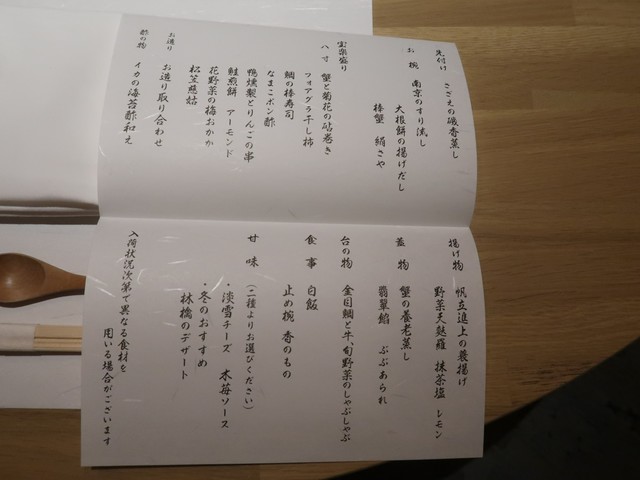 先付け さざえの磯香蒸し
お椀 南京のすり流し
大根餅の揚げだし
棒蟹 絹さや
宝楽盛り
八寸 蟹と菊花の砧巻き
フォアグラ干し柿
鯛の棒寿司
なまこポン酢
鴨燻製とりんごの串
鮭煎餅 アーモンド
花野菜の梅おかか
松笠慈姑
お造り お造り取り合わせ
酢の物 イカの海苔酢和え
揚げ物 帆立進上の蓑揚げ
野菜天麩羅 抹茶塩 レモン
蓋物 蟹の養老蒸し
翡翠餡 ぶぶあられ
台の物 金目鯛と牛、旬野菜のしゃぶしゃぶ
食事 白飯
止め椀 香のもの
甘味 (二種よりお選びください)
・淡雪チーズ 木苺ソース
・冬のおすすめ
林檎のデザート
入荷状況次第で異なる食材を
用いる場合がございます